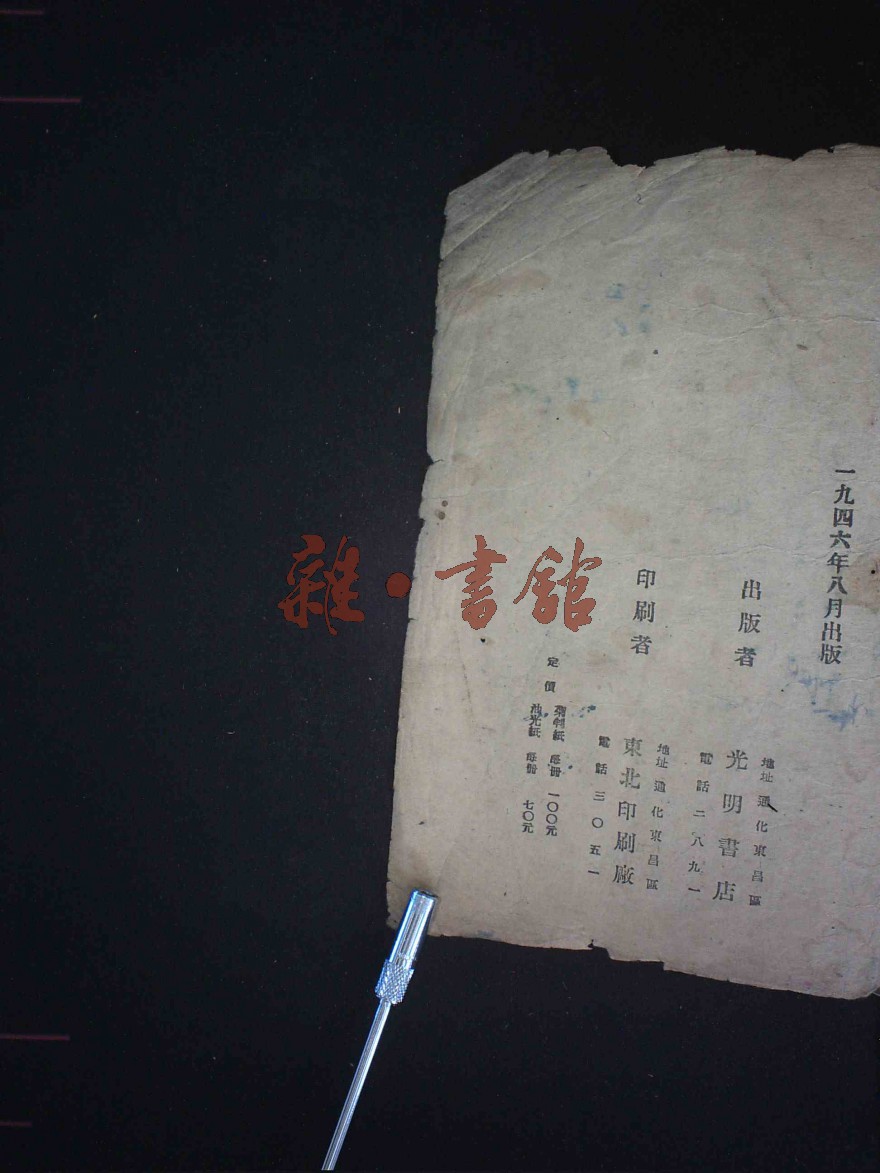 一九四六年八月出版
出版者
地址 通化東昌區
光明書店
電話二八九一
印刷者
地址 通化東昌區
東北印刷廠
電話三〇五一
定價
菊判紙 每冊 一〇〇元
油光紙 每冊 七〇元
雜·書館